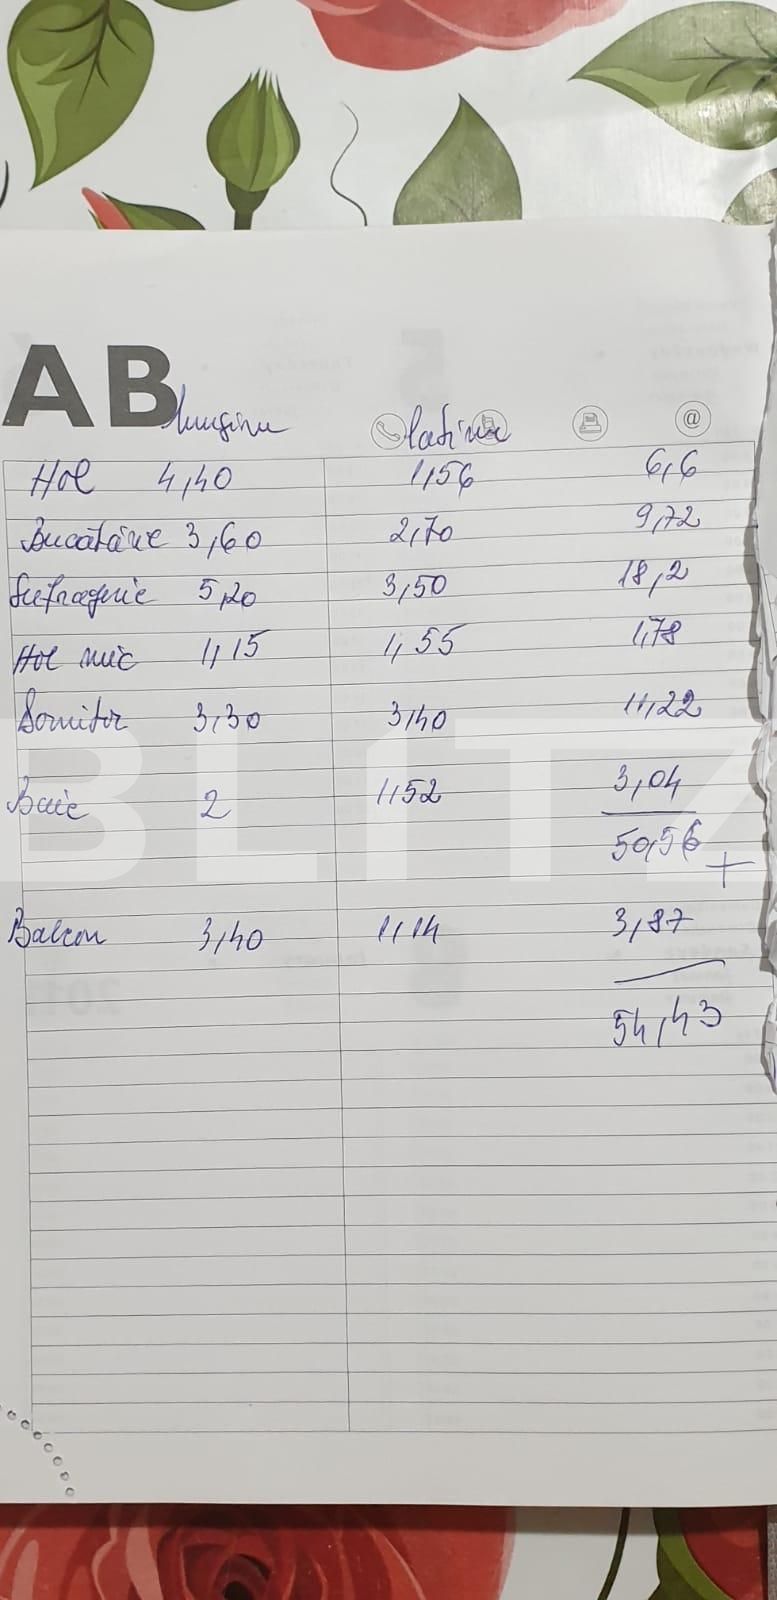 AB
lungime lățime
Hol 4,40 1,56 6,6
Bucătărie 3,60 2,70 9,72
Sufragerie 5,20 3,50 18,2
Hol mic 1,15 1,55 1,78
Dormitor 3,30 3,40 11,22
Baie 2 1,52 3,04
50,56 +
Balcon 3,40 1,14 3,87
54,43
BLITZ